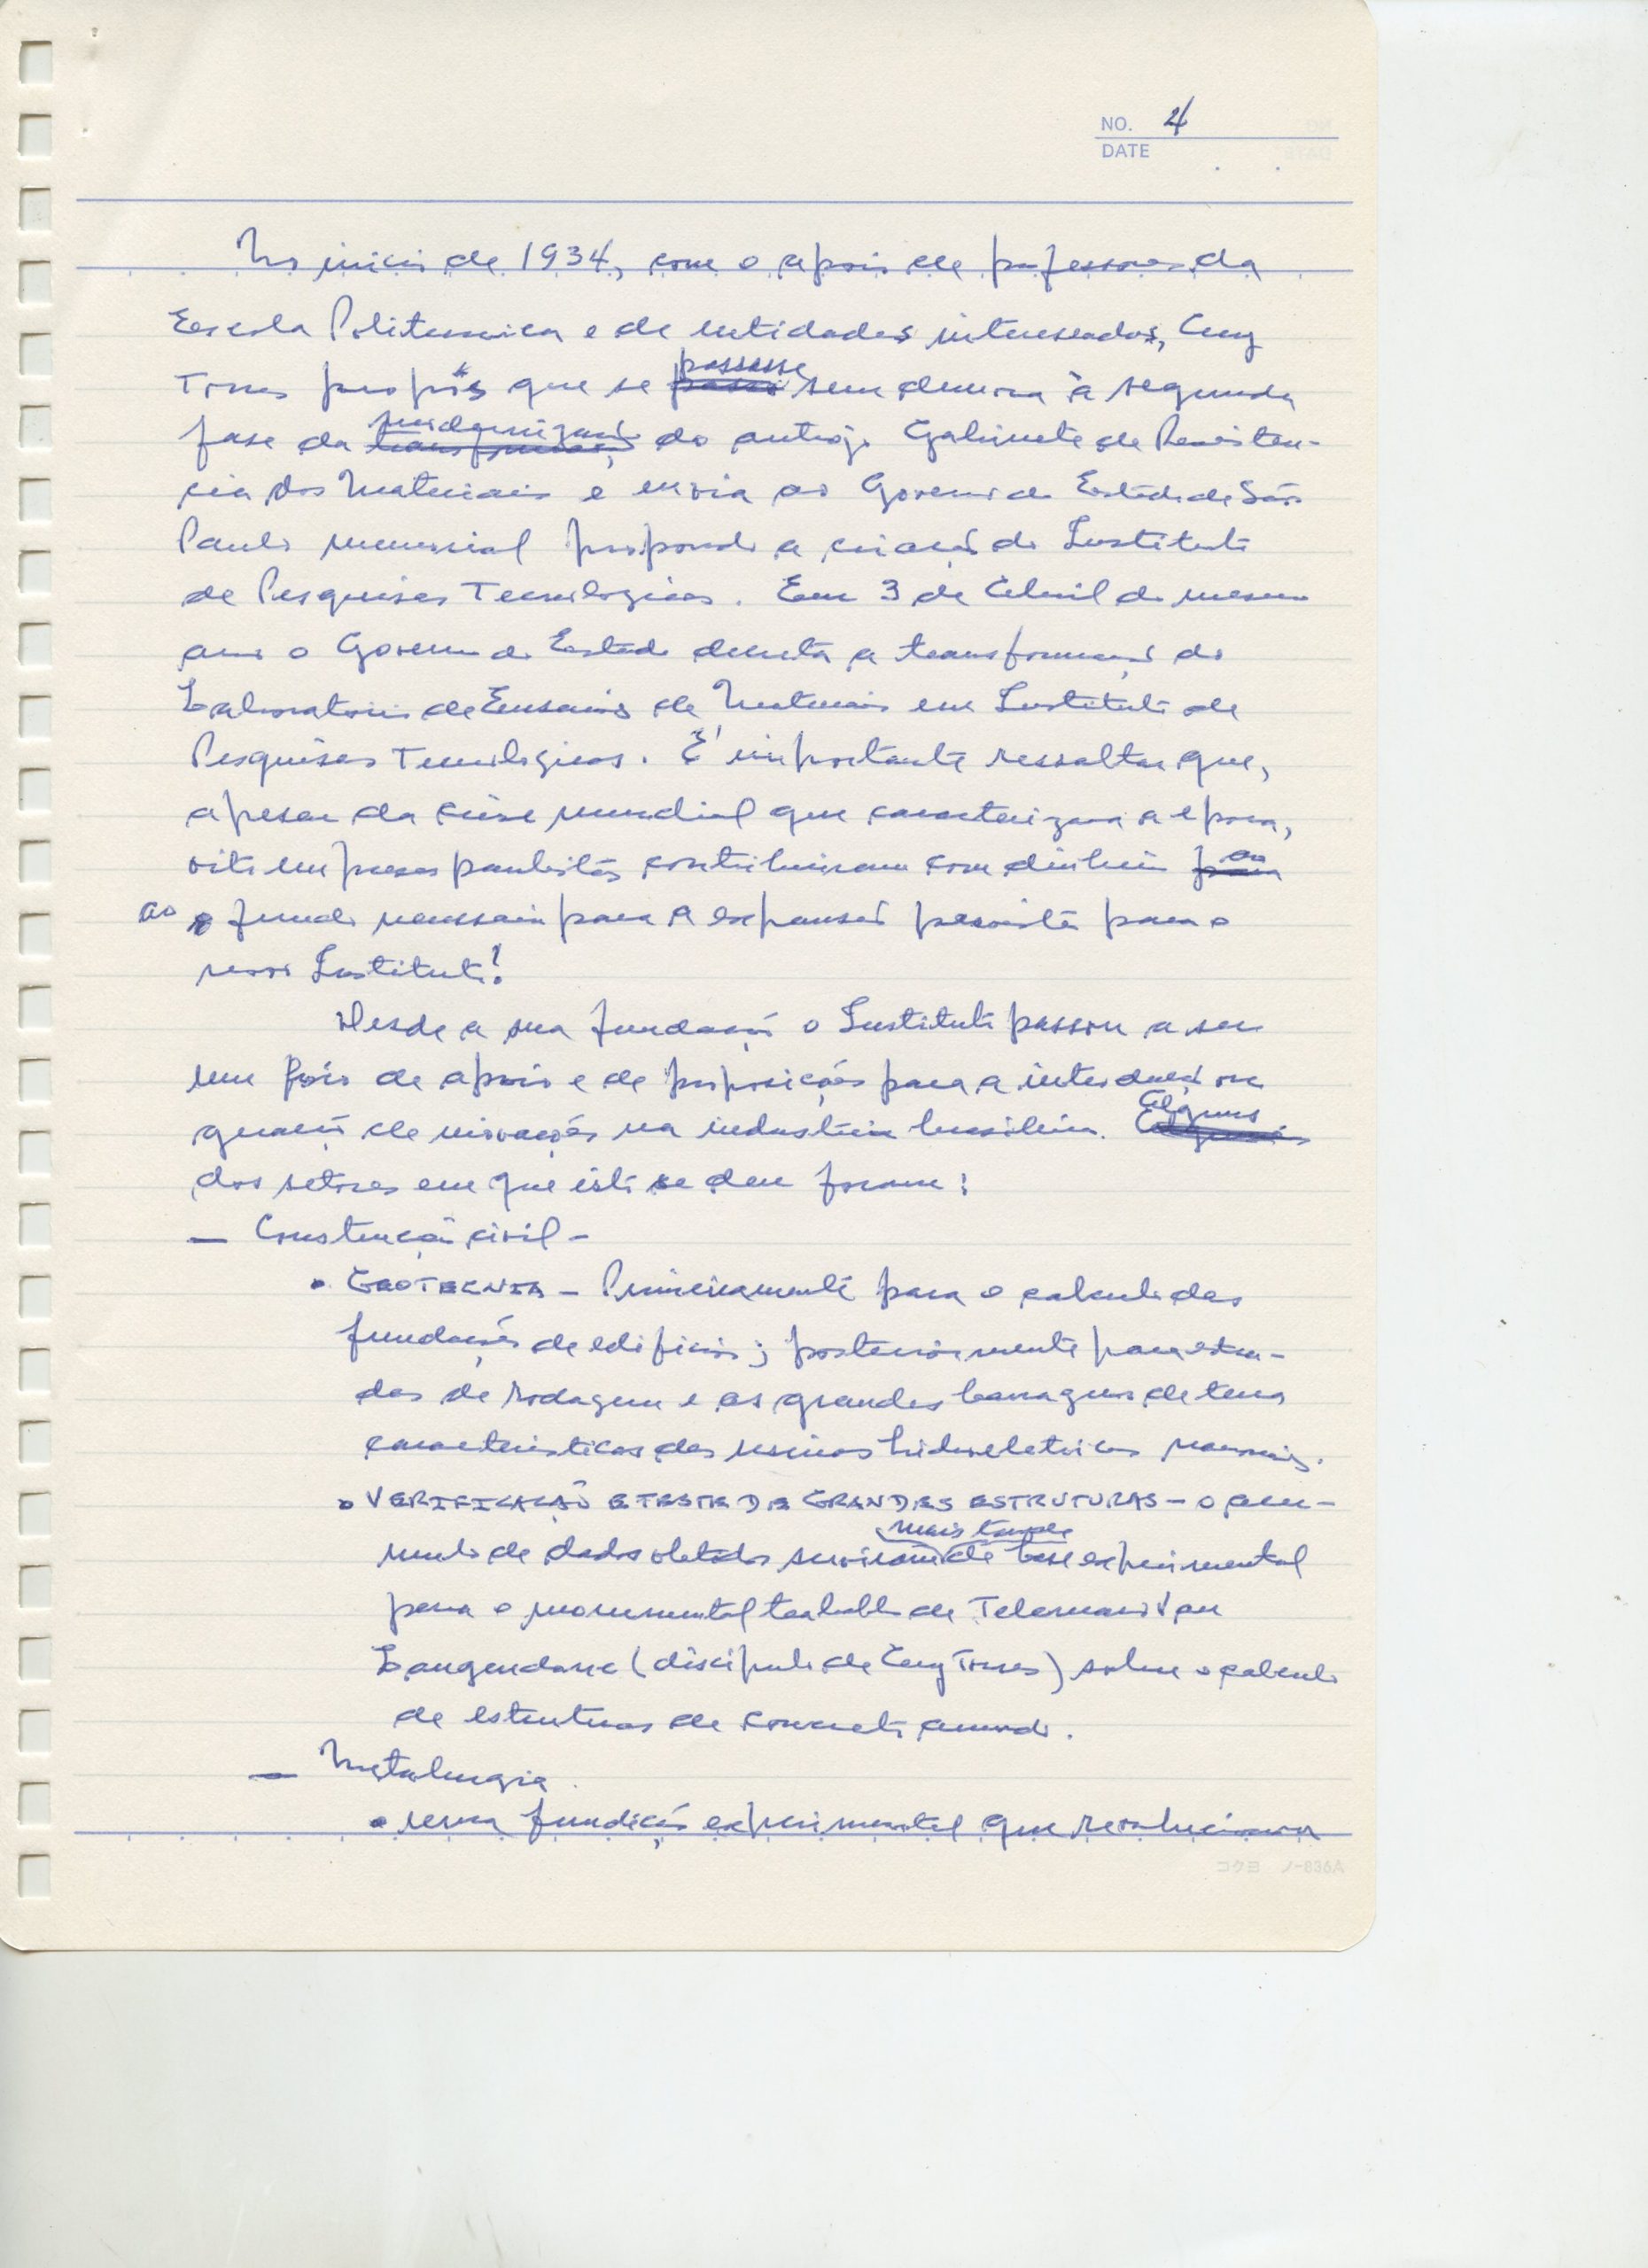 NO. 4
DATE
No inicio de 1934, com o apoio de professores da
Escola Politecnica e de entidades interessadas, Ary
Torres propôs que se passasse sem demora à segunda
fase da modernização do antigo Gabinete de Resisten-
cia dos Materiais e envia ao Governo do Estado de São
Paulo memorial propondo a criação do Instituto
de Pesquisas Tecnologicas. Em 3 de Abril do mesmo
ano o Governo do Estado decreta a transformação do
Laboratorio de Ensaios de Materiais em Instituto de
Pesquisas Tecnologicas. É importante ressaltar que,
apesar da crise mundial que caracterizava a epoca,
oito empresas paulistas contribuiram com dinheiro
ao fundo necessario para a expansão prevista para o
novo Instituto!
Desde a sua fundação o Instituto passou a ser
um polo de apoio e de proposições para a introdução ou
geração de inovações na industria brasileira. Alguns
dos setores em que isto se deu foram:
— Construção civil -
• GEOTECNIA - Primeiramente para o calculo das
fundações de edificios; posteriormente para estra-
das de rodagem e as grandes barragens de terra
caracteristicas das usinas hidroeletricas nacionais.
• VERIFICAÇÃO E TESTE DE GRANDES ESTRUTURAS - o acu-
mais tarde
mulo de dados obtidos serviram de base experimental
para o monumental trabalho de Telemaco Van
Langendonck (discipulo de Ary Torres) sobre o calculo
de estruturas de concreto armado.
— Metalurgia.
• uma fundição experimental que revolucionou
コクヨ ノ-836A